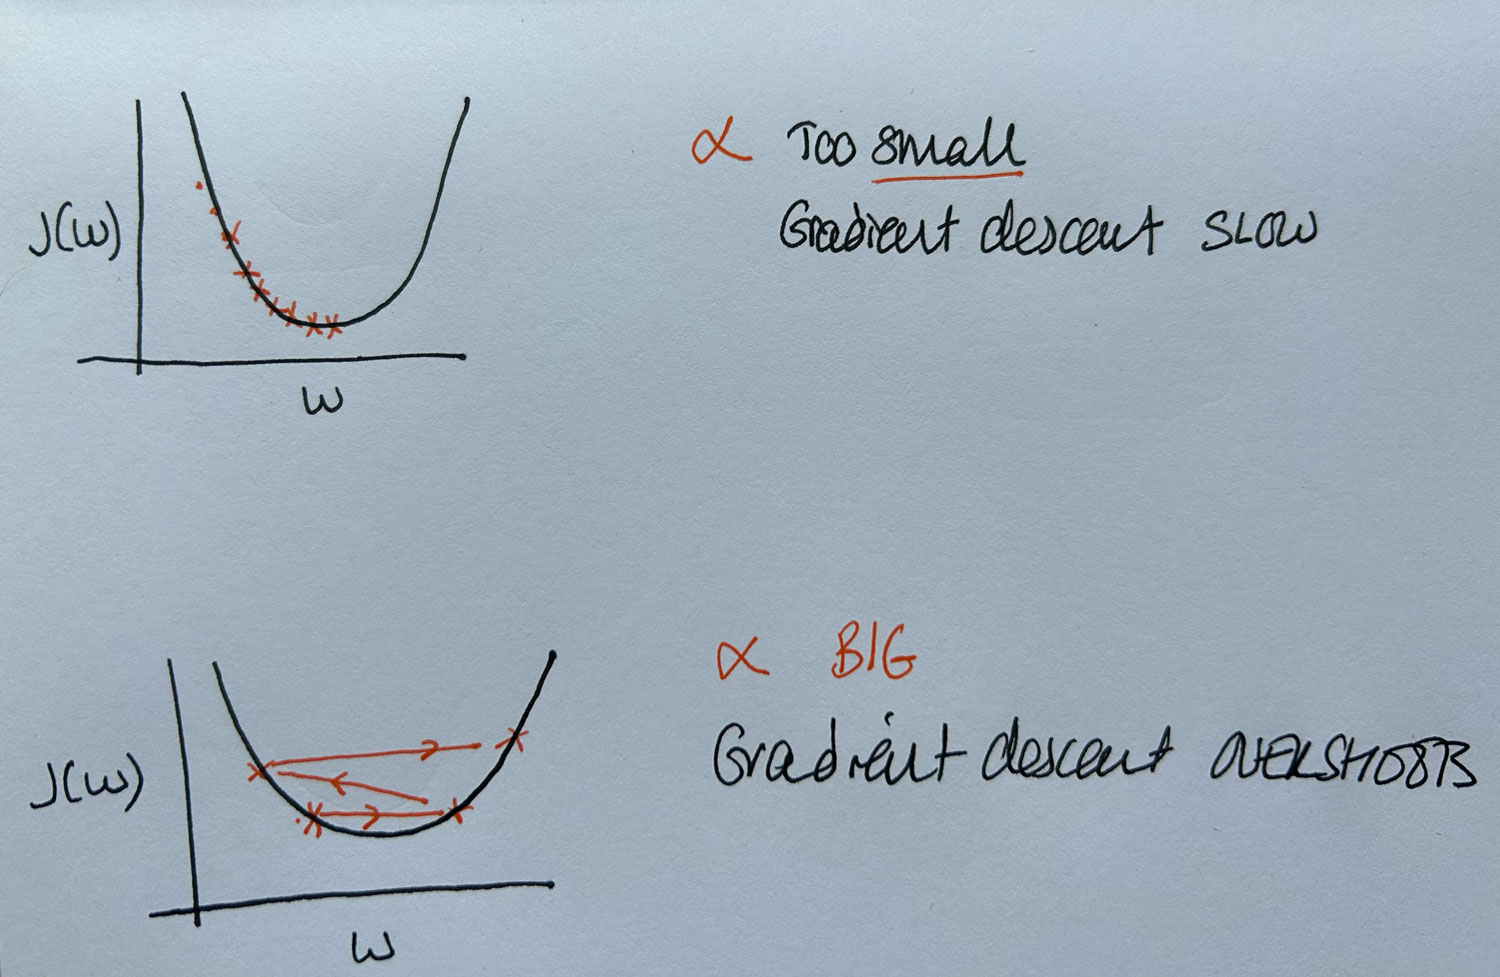 J(w)
w
∝ Too small
Gradient descent SLOW
J(w)
w
∝ BIG
Gradient descent OVERSHOOTS